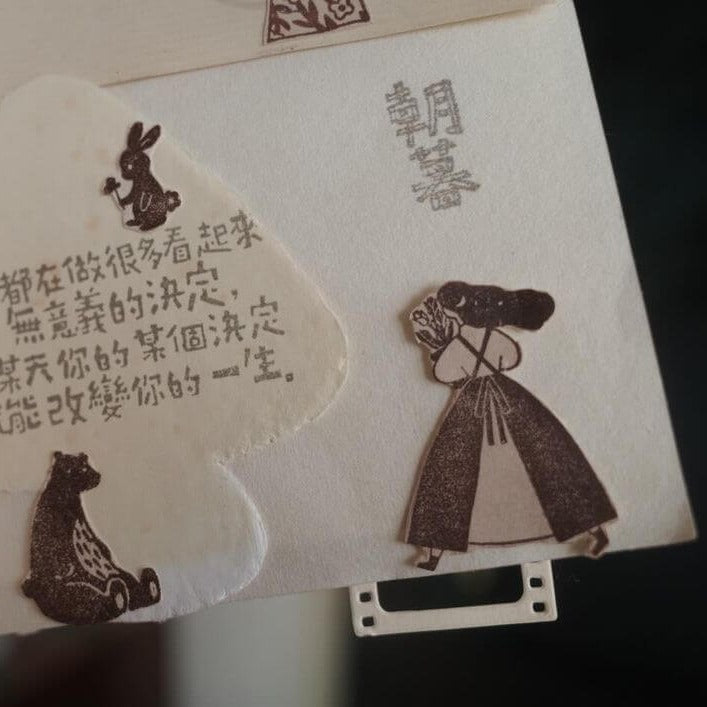 朝
暮
都在做很多看起來
無意義的決定，
某天你的某個決定
能改變你的一生。